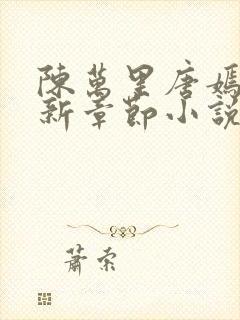 陳萬里唐嫣
新章節小說
蕭索